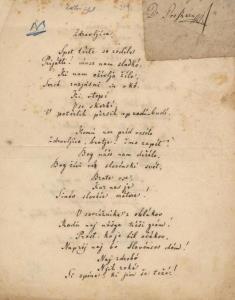 Dr. Prešeren
Zdravljica.
Spet trte so rodile
Prijatli! vince nam sladkó,
Ki nam oživlja žile,
Srcé razjásni in okó.
Ki utopi
Vse skerbi,
V potrtih prsih up
Komú nar pred veselo
Zdravljico, bratje! čmo zapét'?
Bog naše nam deželo,
Bog živi ves slovénski svét,
Brate vse,
Kar nas je
Sinóv slovéče mátere!
V sovražnike z oblakov
Rodú naj naš'ga
Prost, ko je bil očakov,
Naprej naj bo Slovéncov dom;
Naj zdrobé
Njih roké
Si spone, ki jih še težé!